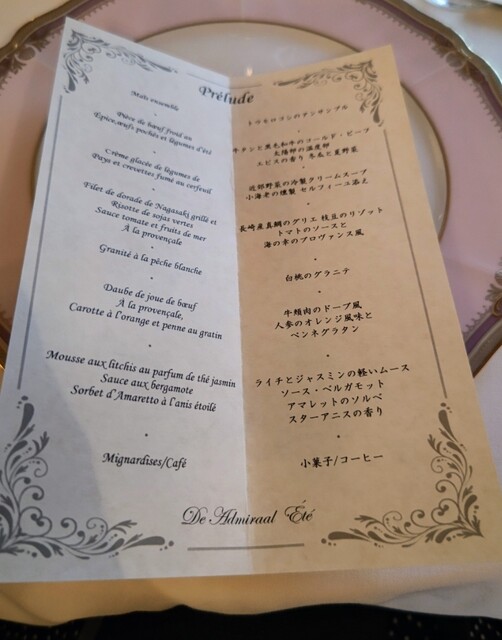 Prélude
Maïs ensemble
Pièce de bœuf froid au
Épice,œufs pochés et légumes d'été
Crème glacée de légumes de
Pays et crevettes fumé au cerfeuil
Filet de dorade de Nagasaki grillé et
Risotte de sojas vertes
Sauce tomate et fruits de mer
À la provençale
Granité à la pêche blanche
Daube de joue de bœuf
À la provençale,
Carotte à l'orange et penne au gratin
Mousse aux litchis au parfum de thé jasmin
Sauce aux bergamote
Sorbet d'Amaretto à l'anis étoilé
Mignardises/Café
トウモロコシのアンサンブル
牛タンと黒毛和牛のコールド・ビーフ
太陽卵の温度卵
エピスの香り 冬瓜と夏野菜
近郊野菜の冷製クリームスープ
小海老の燻製 セルフィーユ添え
長崎産真鯛のグリエ 枝豆のリゾット
トマトのソースと
海の幸のプロヴァンス風
白桃のグラニテ
牛頬肉のドーブ風
人参のオレンジ風味と
ペンネグラタン
ライチとジャスミンの軽いムース
ソース・ベルガモット
アマレットのソルベ
スターアニスの香り
小菓子/コーヒー
De Admiraal Été